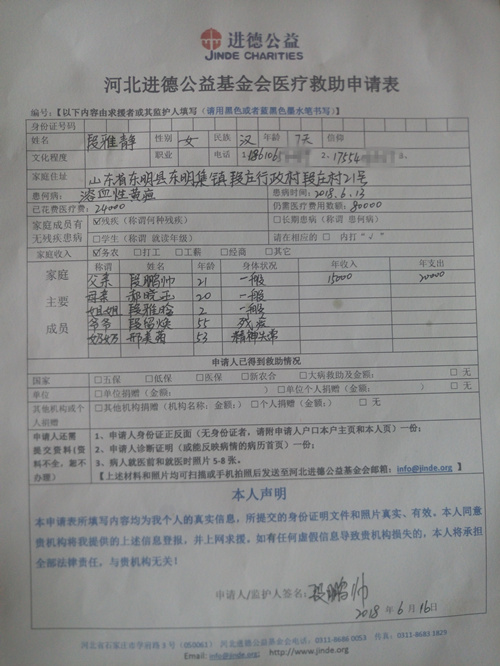 进德公益
JINDE CHARITIES
河北进德公益基金会医疗救助申请表
编号:【以下内容由求援者或其监护人填写(请用黑色或者蓝黑色墨水笔书写)】
身份证号码
姓名 段雅静 性别 女 民族 汉 年龄 7天 信仰
文化程度 职业 电话 2.17554
家庭住址 山东省东明县东明集镇段庄行政村段庄村21号
患何病: 溶血性黄疸 患病时间: 2018.6.13
已花费医疗费: 24000 仍需医疗费用数额: 80000
家庭成员有无残疾患病 ☑残疾(称谓何种残疾) □长期患病(称谓 患何病)
□学生(称谓 就读年级) 请在相应的 □ 内打"√"
家庭收入 ☑务农 □打工 □工薪 □经商 □其它
家庭主要成员 称谓 姓名 年龄 身体状况 年收入 年支出
父亲 段鹏帅 21 一般 15000 20000
母亲 郝晓玉 20 一般
姐姐 段雅晗 2 一般
爷爷 段留焕 55 残疾
奶奶 53 精神失常
申请人已得到救助情况
国家 □五保 □低保 □医保 □新农合 □大病救助及金额: □ 无
单位 □单位捐赠(金额: ) □单位个人捐赠(金额: ) □ 无
其他机构或个人捐赠 □其他机构捐赠(机构名称: 金额:) □个人捐赠(金额:) □ 无
申请人还需提交资料(资料不全,恕不办理) 1、申请人身份证正反面(无身份证者,请附申请人户口本户主页和本人页)一份;
2、申请人诊断证明(或能反映病情的病历首页)一份;
3、病人就医前和就医时照片 5-8 张。
【上述材料和照片均可扫描或手机拍照后发送至河北进德公益基金会邮箱:info@jinde.org 】
本人声明
本申请表所填写内容均为我个人的真实信息,所提交的身份证明文件和照片真实、有效。本人同意
贵机构将我提供的上述信息登报,并上网求援。如有任何虚假信息导致贵机构损失的,本人将承担
全部法律责任,与贵机构无关!
申请人/监护人签名: 段鹏帅
2018 年 6 月 16 日
河北省石家庄市学府路 5 号(050061) 河北进德公益基金会电话:0311-8686 0053 传真:0311-8683 2829
Email: info@jinde.org http://www.jinde.org